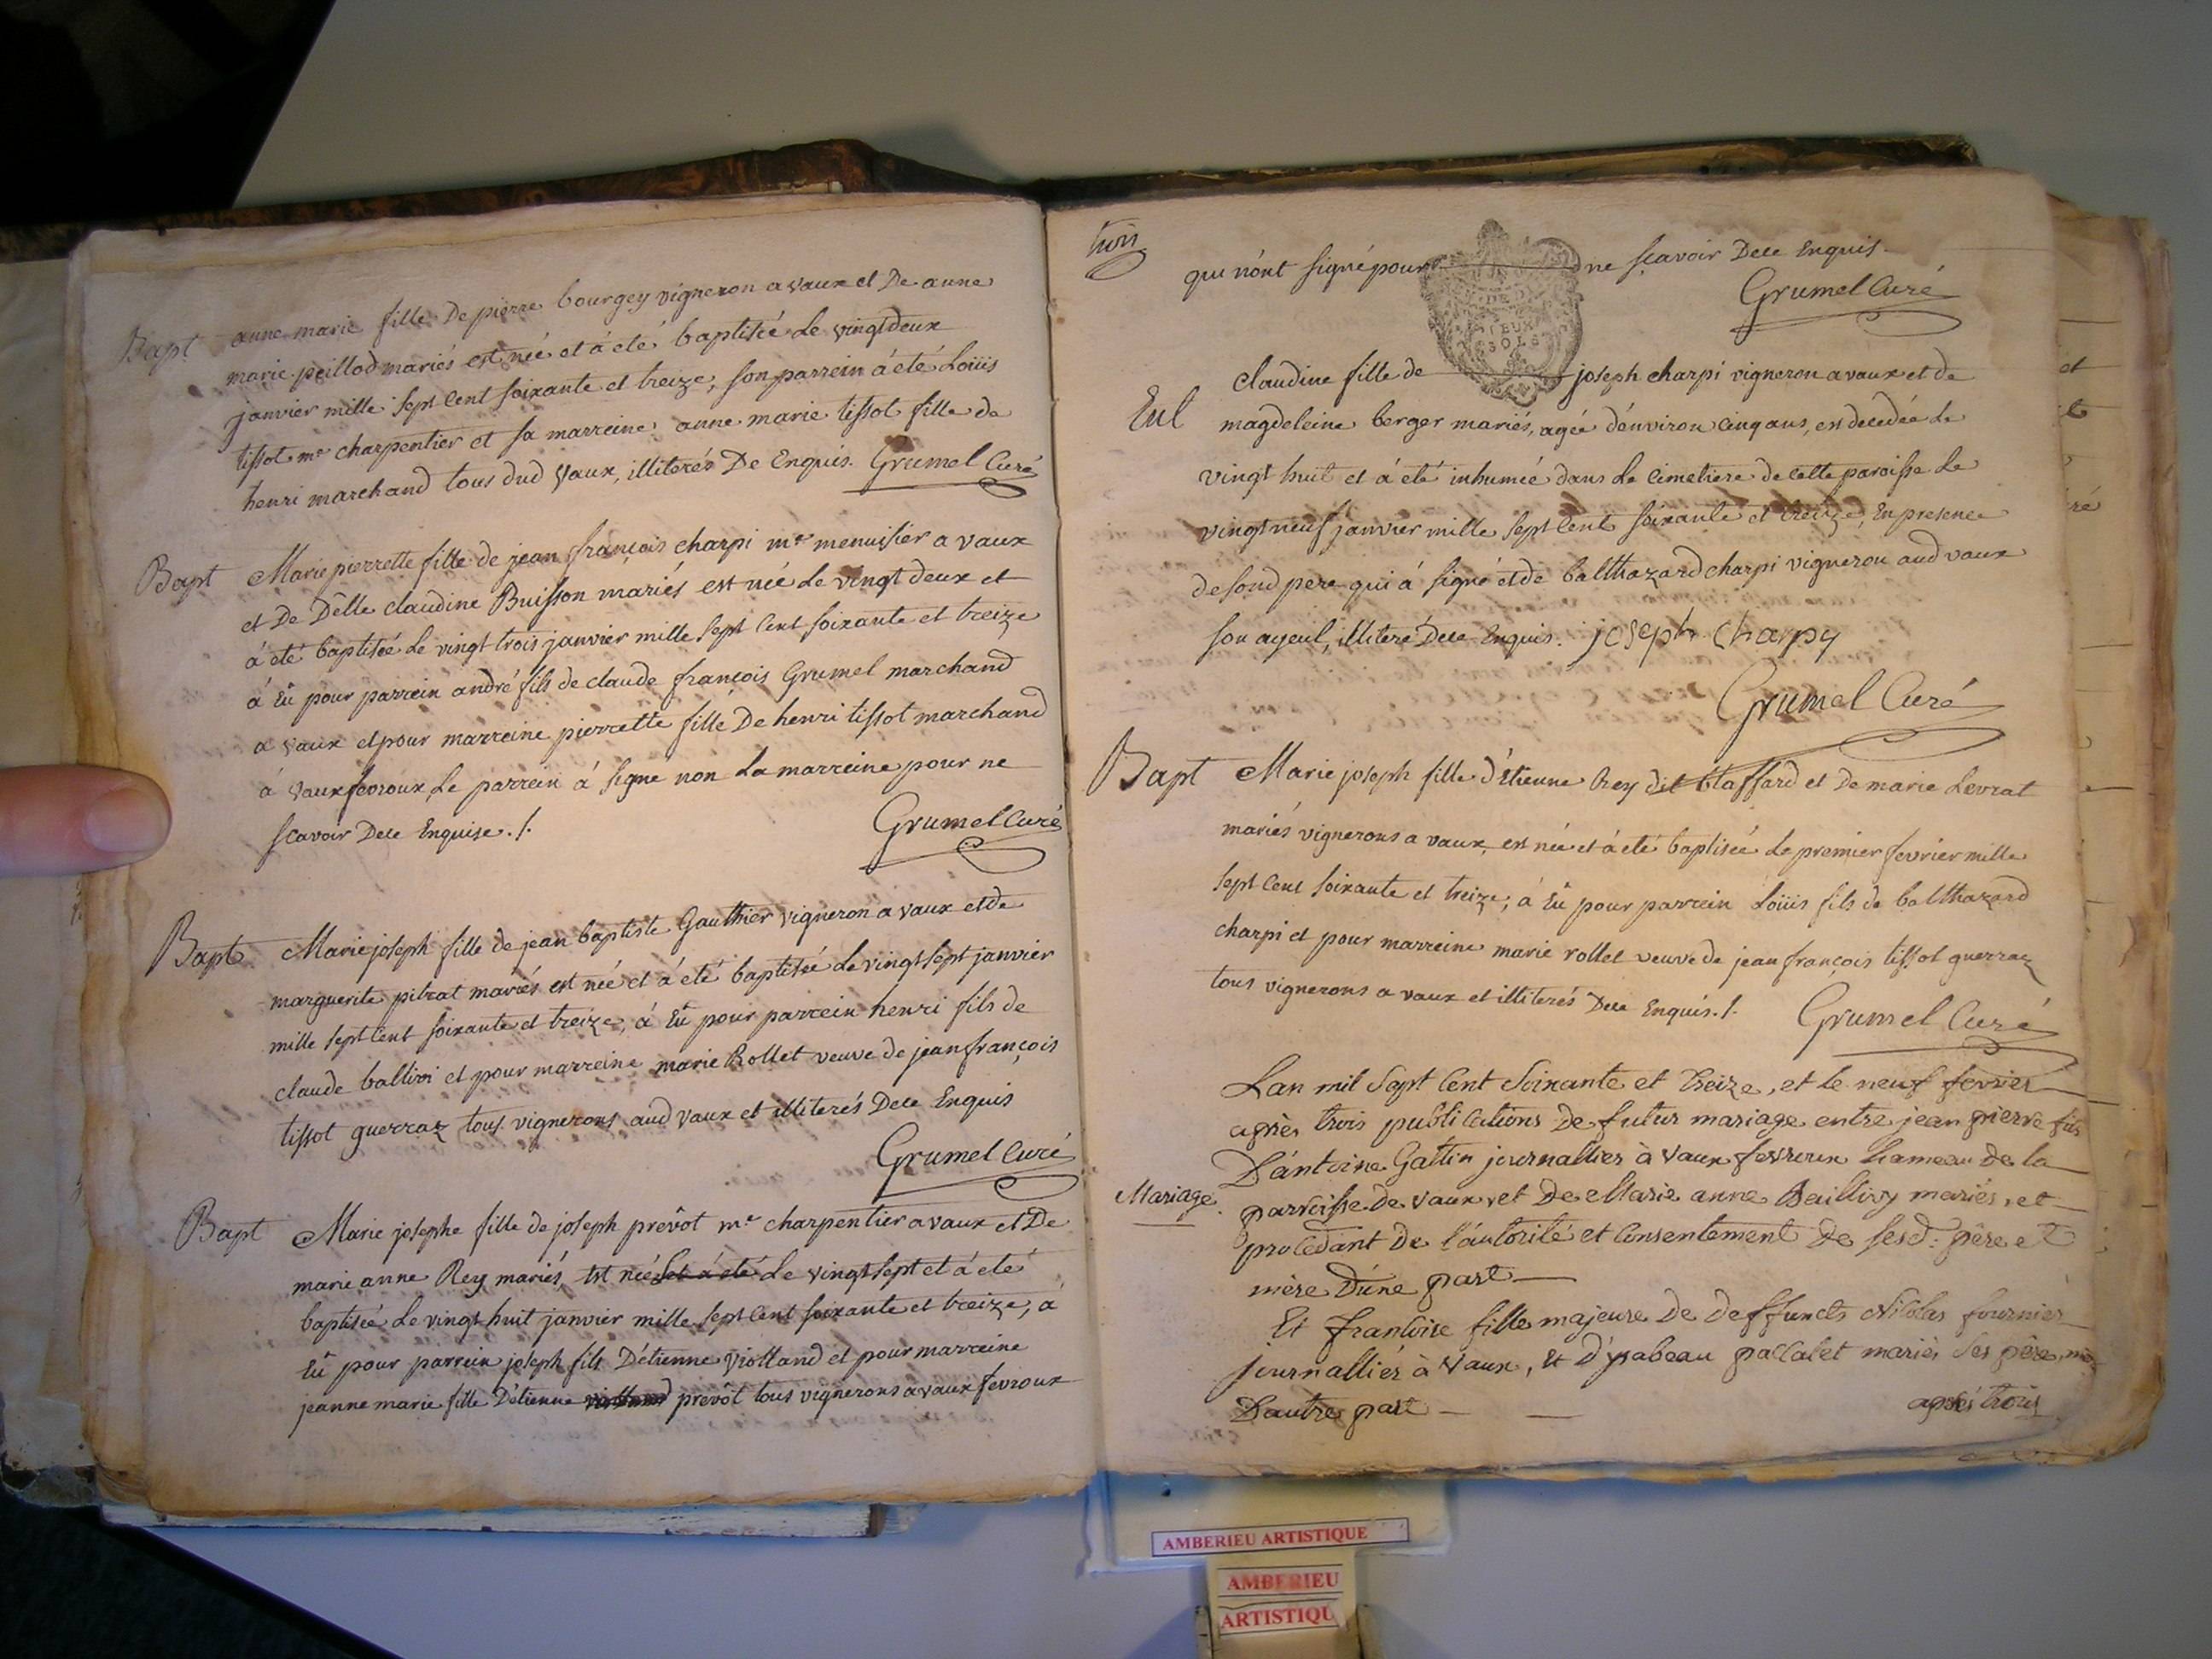 Bapt anne marie fille De pierre bourgey vigneron a vaux et De anne
marie peillod mariés est née et à été baptisée Le vingt deux
janvier mille sept Cent soixante et treize, son parrein à été Loüis
tissot me charpentier et sa marreine anne marie tissot fille de
henri marchand tous dud vaux, illiterés De Enquis. Grumel Curé
Bapt Marie pierrette fille de jean françois charpi me menuisier a vaux
et De Delle claudine Buisson mariés est née Le vingt deux et
à été baptisée Le vingt trois janvier mille sept Cent soixante et treize
à Eû pour parrein andré fils de claude françois Grumel marchand
a vaux et pour marreine pierrette fille De henri tissot marchand
à vaux fevroux, Le parrein à signe non La marreine pour ne
scavoir Dece Enquise ./. Grumel Curé
Bapt Marie joseph fille de jean baptiste Gauthier vigneron a vaux et de
marguerite pitrat mariés est née et à été baptisée Le vingt sept janvier
mille sept Cent soixante et treize, à Eû pour parrein henri fils de
claude ballivi et pour marreine marie Rollet veuve de jean françois
tissot guerraz tous vignerons aud vaux et illiterés Dece Enquis
Grumel Curé
Bapt Marie josephe fille de joseph prevôt me charpentier a vaux et De
marie anne Rey mariés, Est née et à été Le vingt sept et à été
baptisée Le vingt huit janvier mille sept Cent soixante et treize, à
Eû pour parrein joseph fils D'etienne violland et pour marreine
jeanne marie fille D'etienne prevôt tous vignerons a vaux fevroux
trois
qui n'ont signé pour ne scavoir Dece Enquis
Grumel Curé
DEUX
SOLS
claudine fille de joseph charpi vigneron a vaux et de
Eul magdeleine berger mariés, agée d'environ cinq ans, est decedée Le
vingt huit et à été inhumée dans Le Cimetiere de Cette paroisse Le
vingt neuf janvier mille sept Cent soixante et treize, En presence
de sond pere qui à signé et de balthazard charpi vigneron aud vaux
son ayeul, illiteré Dece Enquis. joseph charpy
Grumel Curé
Bapt Marie joseph fille d'Etienne Rey dit blaffard et De marie Levrat
mariés vignerons a vaux, est née et à été baptisée Le premier fevrier mille
sept Cent soixante et treize; à Eû pour parrein Loüis fils de balthazard
charpi et pour marreine marie rollet veuve de jean françois tissot guerraz
tous vignerons a vaux et illiterés Dece Enquis ./. Grumel Curé
Lan mil Sept Cent Soixante et treize, et le neuf fevrier
après trois publications De futur mariage entre jean pierre fils
D'antoine Gattin journallier à Vaux fevroux hameau de la
Mariage. parroisse de vaux et De Marie anne Baillivy mariés, et
procédant De l'autorité et Consentement De sesd. père et
mère D'une part
Et françoise fille majeure De Deffuncts Nicolas fournier
journallier à Vaux, Et D'ysabeau pallatet mariés ses père, mè
D'autre part
après trois
AMBERIEU ARTISTIQUE
AMBERIEU
ARTISTIQU